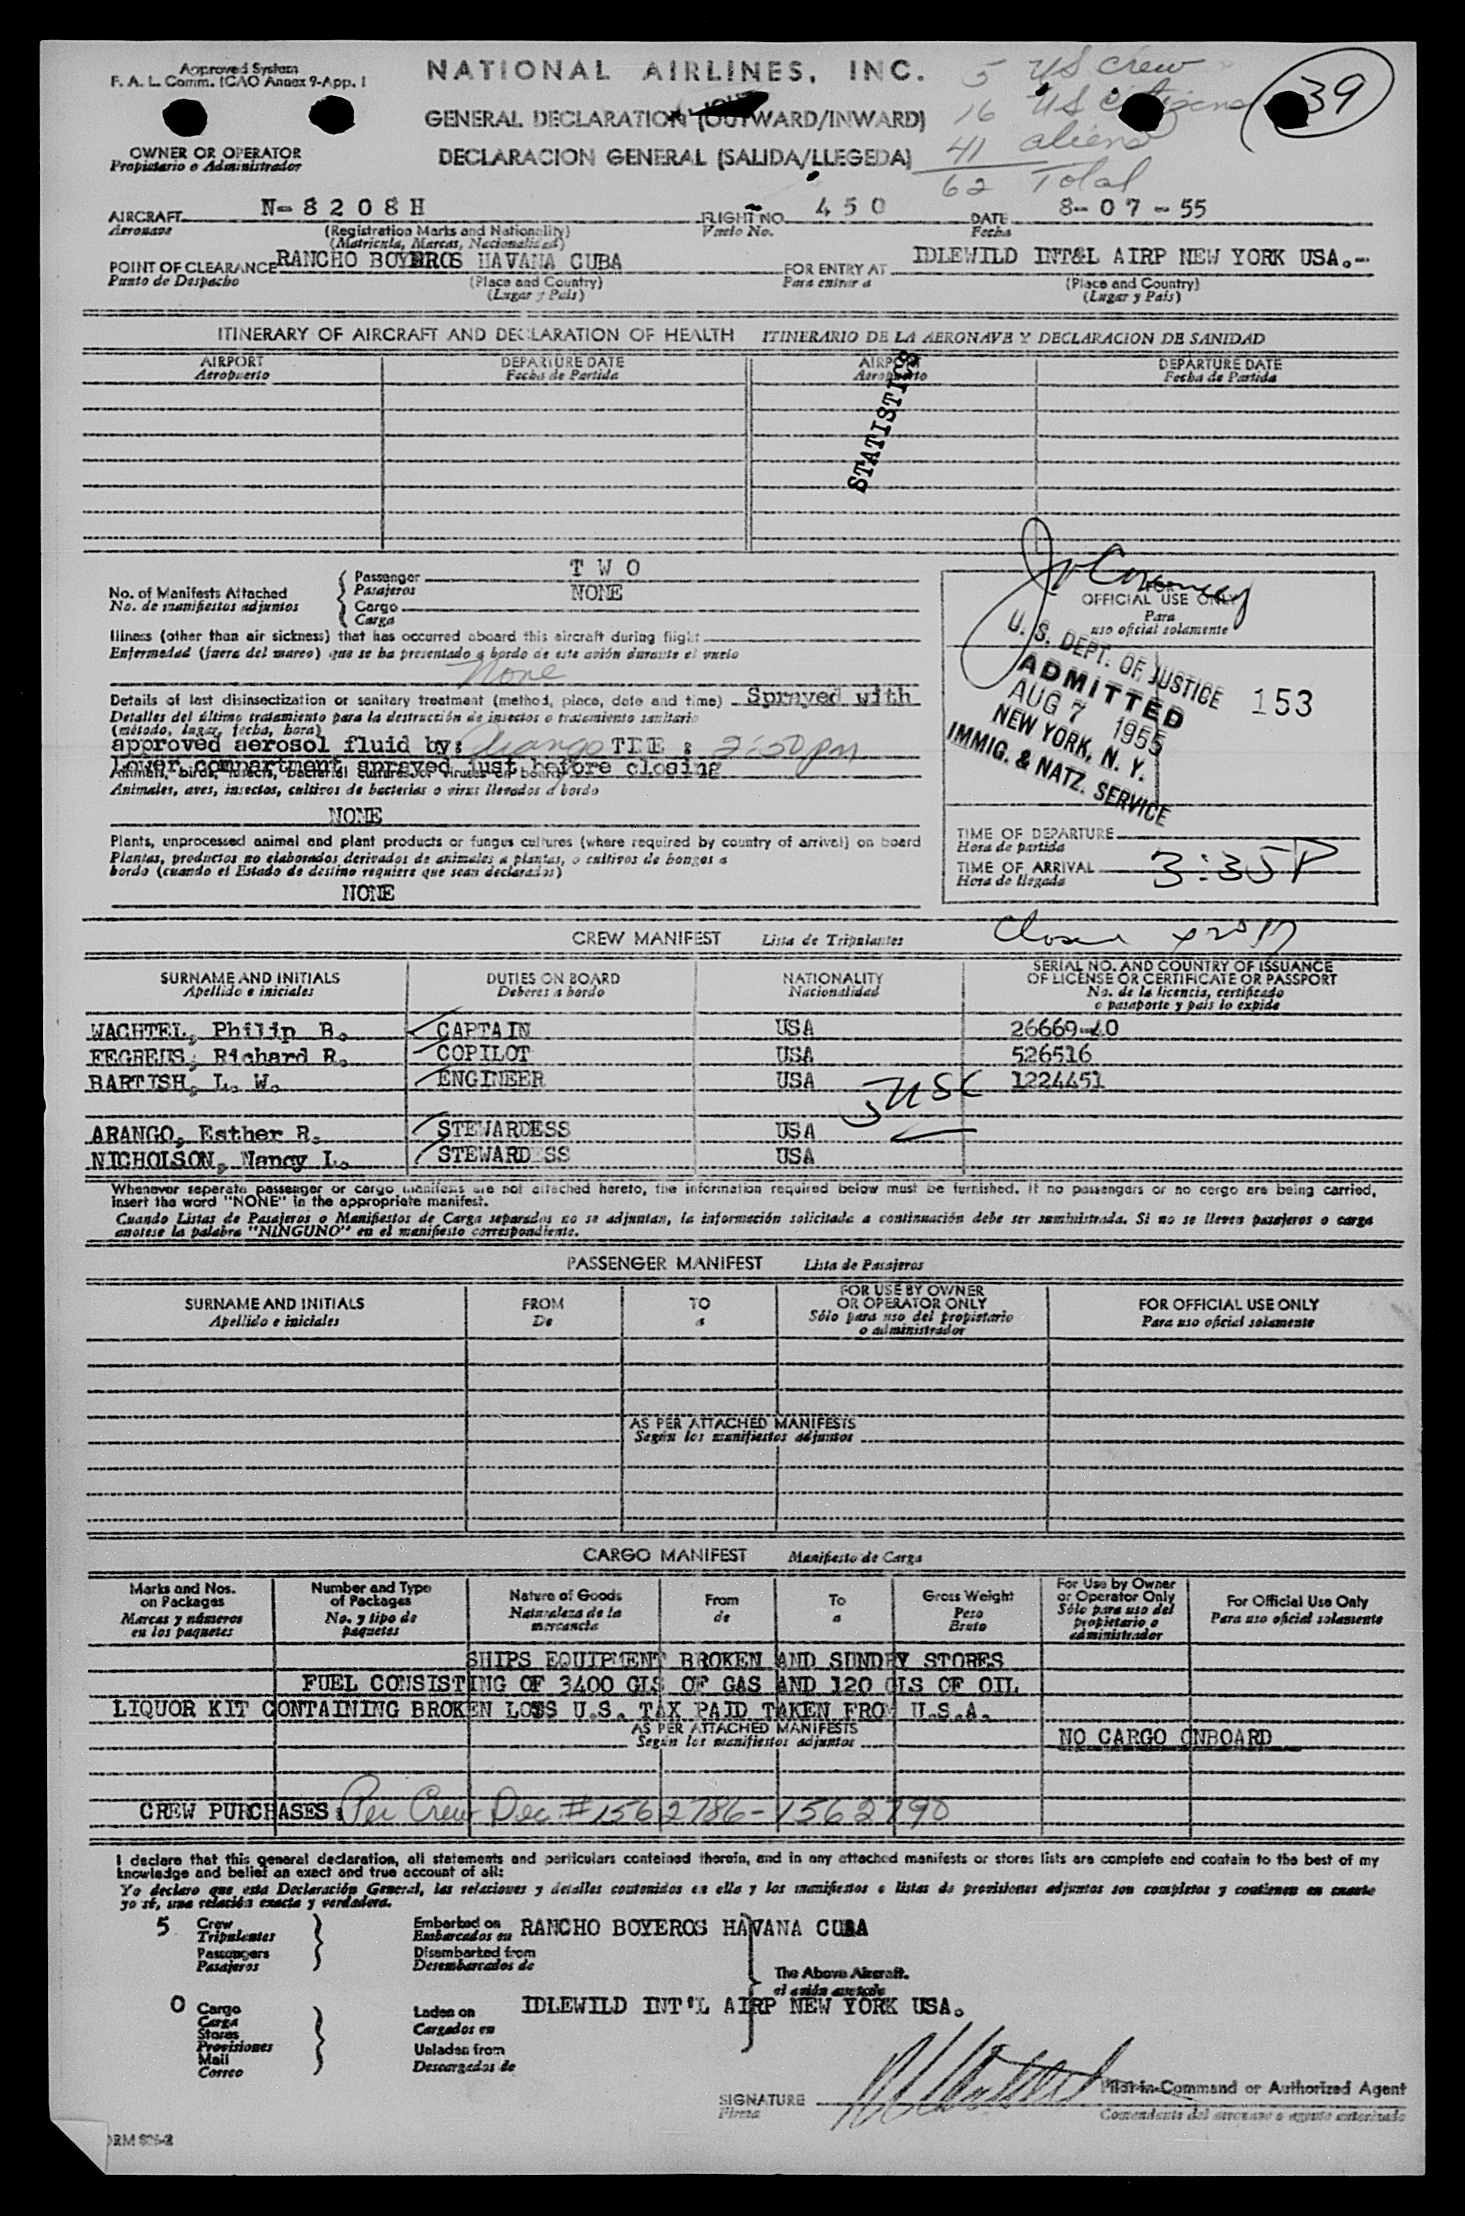 Approved System
F. A. L. Comm. ICAO Annex 9-App. I
NATIONAL AIRLINES, INC.
5 US crew
16 US citizens
41 aliens
62 Total
39
GENERAL DECLARATION (OUTWARD/INWARD)
DECLARACION GENERAL (SALIDA/LLEGEDA)
OWNER OR OPERATOR
Propietario o Administrador
AIRCRAFT N-8208H FLIGHT NO. 450 DATE 8-07-55
Aeronave (Registration Marks and Nationality) Vuelo No. Fecha
(Matricula, Marcas, Nacionalidad)
POINT OF CLEARANCE RANCHO BOYEROS HAVANA CUBA FOR ENTRY AT IDLEWILD INT&L AIRP NEW YORK USA.-
Punto de Despacho (Place and Country) Para entrar a (Place and Country)
(Lugar y Pais) (Lugar y Pais)
ITINERARY OF AIRCRAFT AND DECLARATION OF HEALTH ITINERARIO DE LA AERONAVE Y DECLARACION DE SANIDAD
AIRPORT DEPARTURE DATE AIRPORT DEPARTURE DATE
Aeropuerto Fecha de Partida Aeropuerto Fecha de Partida
STATISTICS
No. of Manifests Attached Passenger TWO
No. de manifiestos adjuntos Pasajeros
Cargo NONE
Carga
Illness (other than air sickness) that has occurred aboard this aircraft during flight
Enfermedad (fuera del mareo) que se ha presentado a bordo de este avión durante el vuelo
None
Details of last disinsectization or sanitary treatment (method, place, date and time) Sprayed with
Detalles del último tratamiento para la destrucción de insectos o tratamiento sanitario
(método, lugar, fecha, hora)
approved aerosol fluid by: Arango TIME : 2:50 pm
Lower compartment sprayed just before closing
Animals, birds, insects, bacterial cultures or viruses on board
Animales, aves, insectos, cultivos de bacterias o virus llevados a bordo
NONE
Plants, unprocessed animal and plant products or fungus cultures (where required by country of arrival) on board
Plantas, productos no elaborados derivados de animales a plantas, o cultivos de hongos a
bordo (cuando el Estado de destino requiere que sean declarados)
NONE
FOR
OFFICIAL USE ONLY
Para
uso oficial solamente
U. S. DEPT. OF JUSTICE
ADMITTED
AUG 7 1955
NEW YORK, N. Y.
IMMIG. & NATZ. SERVICE
153
TIME OF DEPARTURE
Hora de partida
TIME OF ARRIVAL 3:35P
Hora de llegada
CREW MANIFEST Lista de Tripulantes
SURNAME AND INITIALS DUTIES ON BOARD NATIONALITY SERIAL NO. AND COUNTRY OF ISSUANCE
OF LICENSE OR CERTIFICATE OR PASSPORT
Apellido e iniciales Deberes a bordo Nacionalidad No. de la licencia, certificado
o pasaporte y pais lo expide
WACHTEL, Philip B. CAPTAIN USA 26669-40
FEGREUS, Richard R. COPILOT USA 526516
BARTISH, L. W. ENGINEER USA 1224451
5 USC
ARANGO, Esther R. STEWARDESS USA
NICHOLSON, Nancy L. STEWARDESS USA
Whenever seperate passenger or cargo manifests are not attached hereto, the information required below must be furnished. If no passengers or no cargo are being carried,
insert the word "NONE" in the appropriate manifest.
Cuando Listas de Pasajeros o Manifiestos de Carga separados no se adjuntan, la información solicitada a continuación debe ser suministrada. Si no se lleven pasajeros o carga
anotese la palabra "NINGUNO" en el manifiesto correspondiente.
PASSENGER MANIFEST Lista de Pasajeros
SURNAME AND INITIALS FROM TO FOR USE BY OWNER
OR OPERATOR ONLY FOR OFFICIAL USE ONLY
Apellido e iniciales De a Sólo para uso del propietario
o administrador Para uso oficial solamente
AS PER ATTACHED MANIFESTS
Según los manifiestos adjuntos
CARGO MANIFEST Manifiesto de Carga
Marks and Nos.
on Packages
Marcas y números
en los paquetes
Number and Type
of Packages
No. y tipo de
paquetes
Nature of Goods
Naturaleza de la
mercancia
From
de
To
a
Gross Weight
Peso
Bruto
For Use by Owner
or Operator Only
Sólo para uso del
propietario o
administrador
For Official Use Only
Para uso oficial solamente
SHIPS EQUIPMENT BROKEN AND SUNDRY STORES
FUEL CONSISTING OF 3400 GLS OF GAS AND 120 GLS OF OIL
LIQUOR KIT CONTAINING BROKEN LOTS U.S. TAX PAID TAKEN FROM U.S.A.
AS PER ATTACHED MANIFESTS
Según los manifiestos adjuntos
NO CARGO ONBOARD
CREW PURCHASES: Per Crew Dec # 1562786-1562790
I declare that this general declaration, all statements and particulars contained therein, and in any attached manifests or stores lists are complete and contain to the best of my
knowledge and belief an exact and true account of all:
Yo declaro que esta Declaración General, las relaciones y detalles contenidos en ella y los manifiestos o listas de provisiones adjuntos son completos y contienen en cuanto
yo sé, una relación exacta y verdadera.
5 Crew
Tripulantes
Passengers
Pasajeros
Embarked on
Embarcados en
RANCHO BOYEROS HAVANA CUBA
Disembarked from
Desembarcados de
The Above Aircraft.
0 Cargo
Carga
Stores
Provisiones
Mail
Correo
Laden on
Cargados en
IDLEWILD INT'L AIRP NEW YORK USA.
Unladen from
Descargados de
SIGNATURE
Firma
Pilot-in-Command or Authorized Agent
Comandante del aeronave o agente autorizado